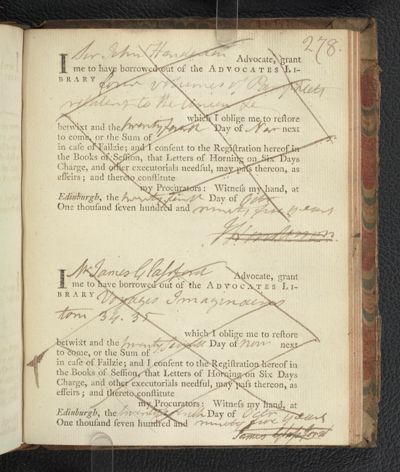 278.
I Sir John Henderson Advocate, grant
me to have borrowed out of the ADVOCATES LI-
BRARY Four volumes of Pamphlets
relating to the
which I oblige me to restore
betwixt and the twenty Day of Nov next
to come, or the Sum of
in case of Failzie; and I consent to the Registration hereof in
the Books of Session, that Letters of Horning on Six Days
Charge, and other executorials needful, may pass thereon, as
effeirs; and thereto constitute
my Procurators: Witness my hand, at
Edinburgh, the twenty Day of Octr
One thousand seven hundred and ninety five years
J Henderson
I Mr James Glassford Advocate, grant
me to have borrowed out of the ADVOCATES LI-
BRARY Voyages Imaginaires
tom 34. 35
which I oblige me to restore
betwixt and the twenty Day of Nov next
to come, or the Sum of
in case of Failzie; and I consent to the Registration hereof in
the Books of Session, that Letters of Horning on Six Days
Charge, and other executorials needful, may pass thereon, as
effeirs; and thereto constitute
my Procurators: Witness my hand, at
Edinburgh, the twenty Day of Octr
One thousand seven hundred and ninety five years
James Glassford